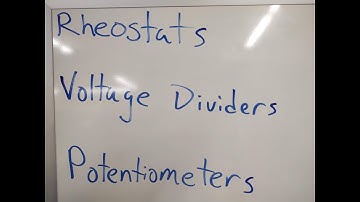 Rheostats
Voltage Dividers
Potentiometers